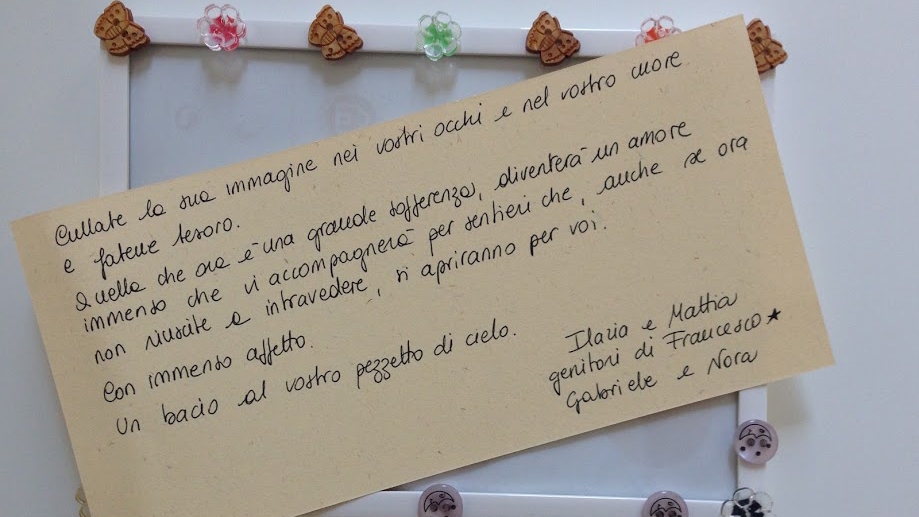 Cullate la sua immagine nei vostri occhi e nel vostro cuore
e fatene tesoro.
Quella che ora è una grande sofferenza, diventerà un amore
immenso che vi accompagnerà per sentieri che, anche se ora
non riuscite a intravedere, si apriranno per voi.
Con immenso affetto.
Un bacio al vostro pezzetto di cielo.
Ilaria e Mattia
genitori di Francesco★
Gabriele e Nora